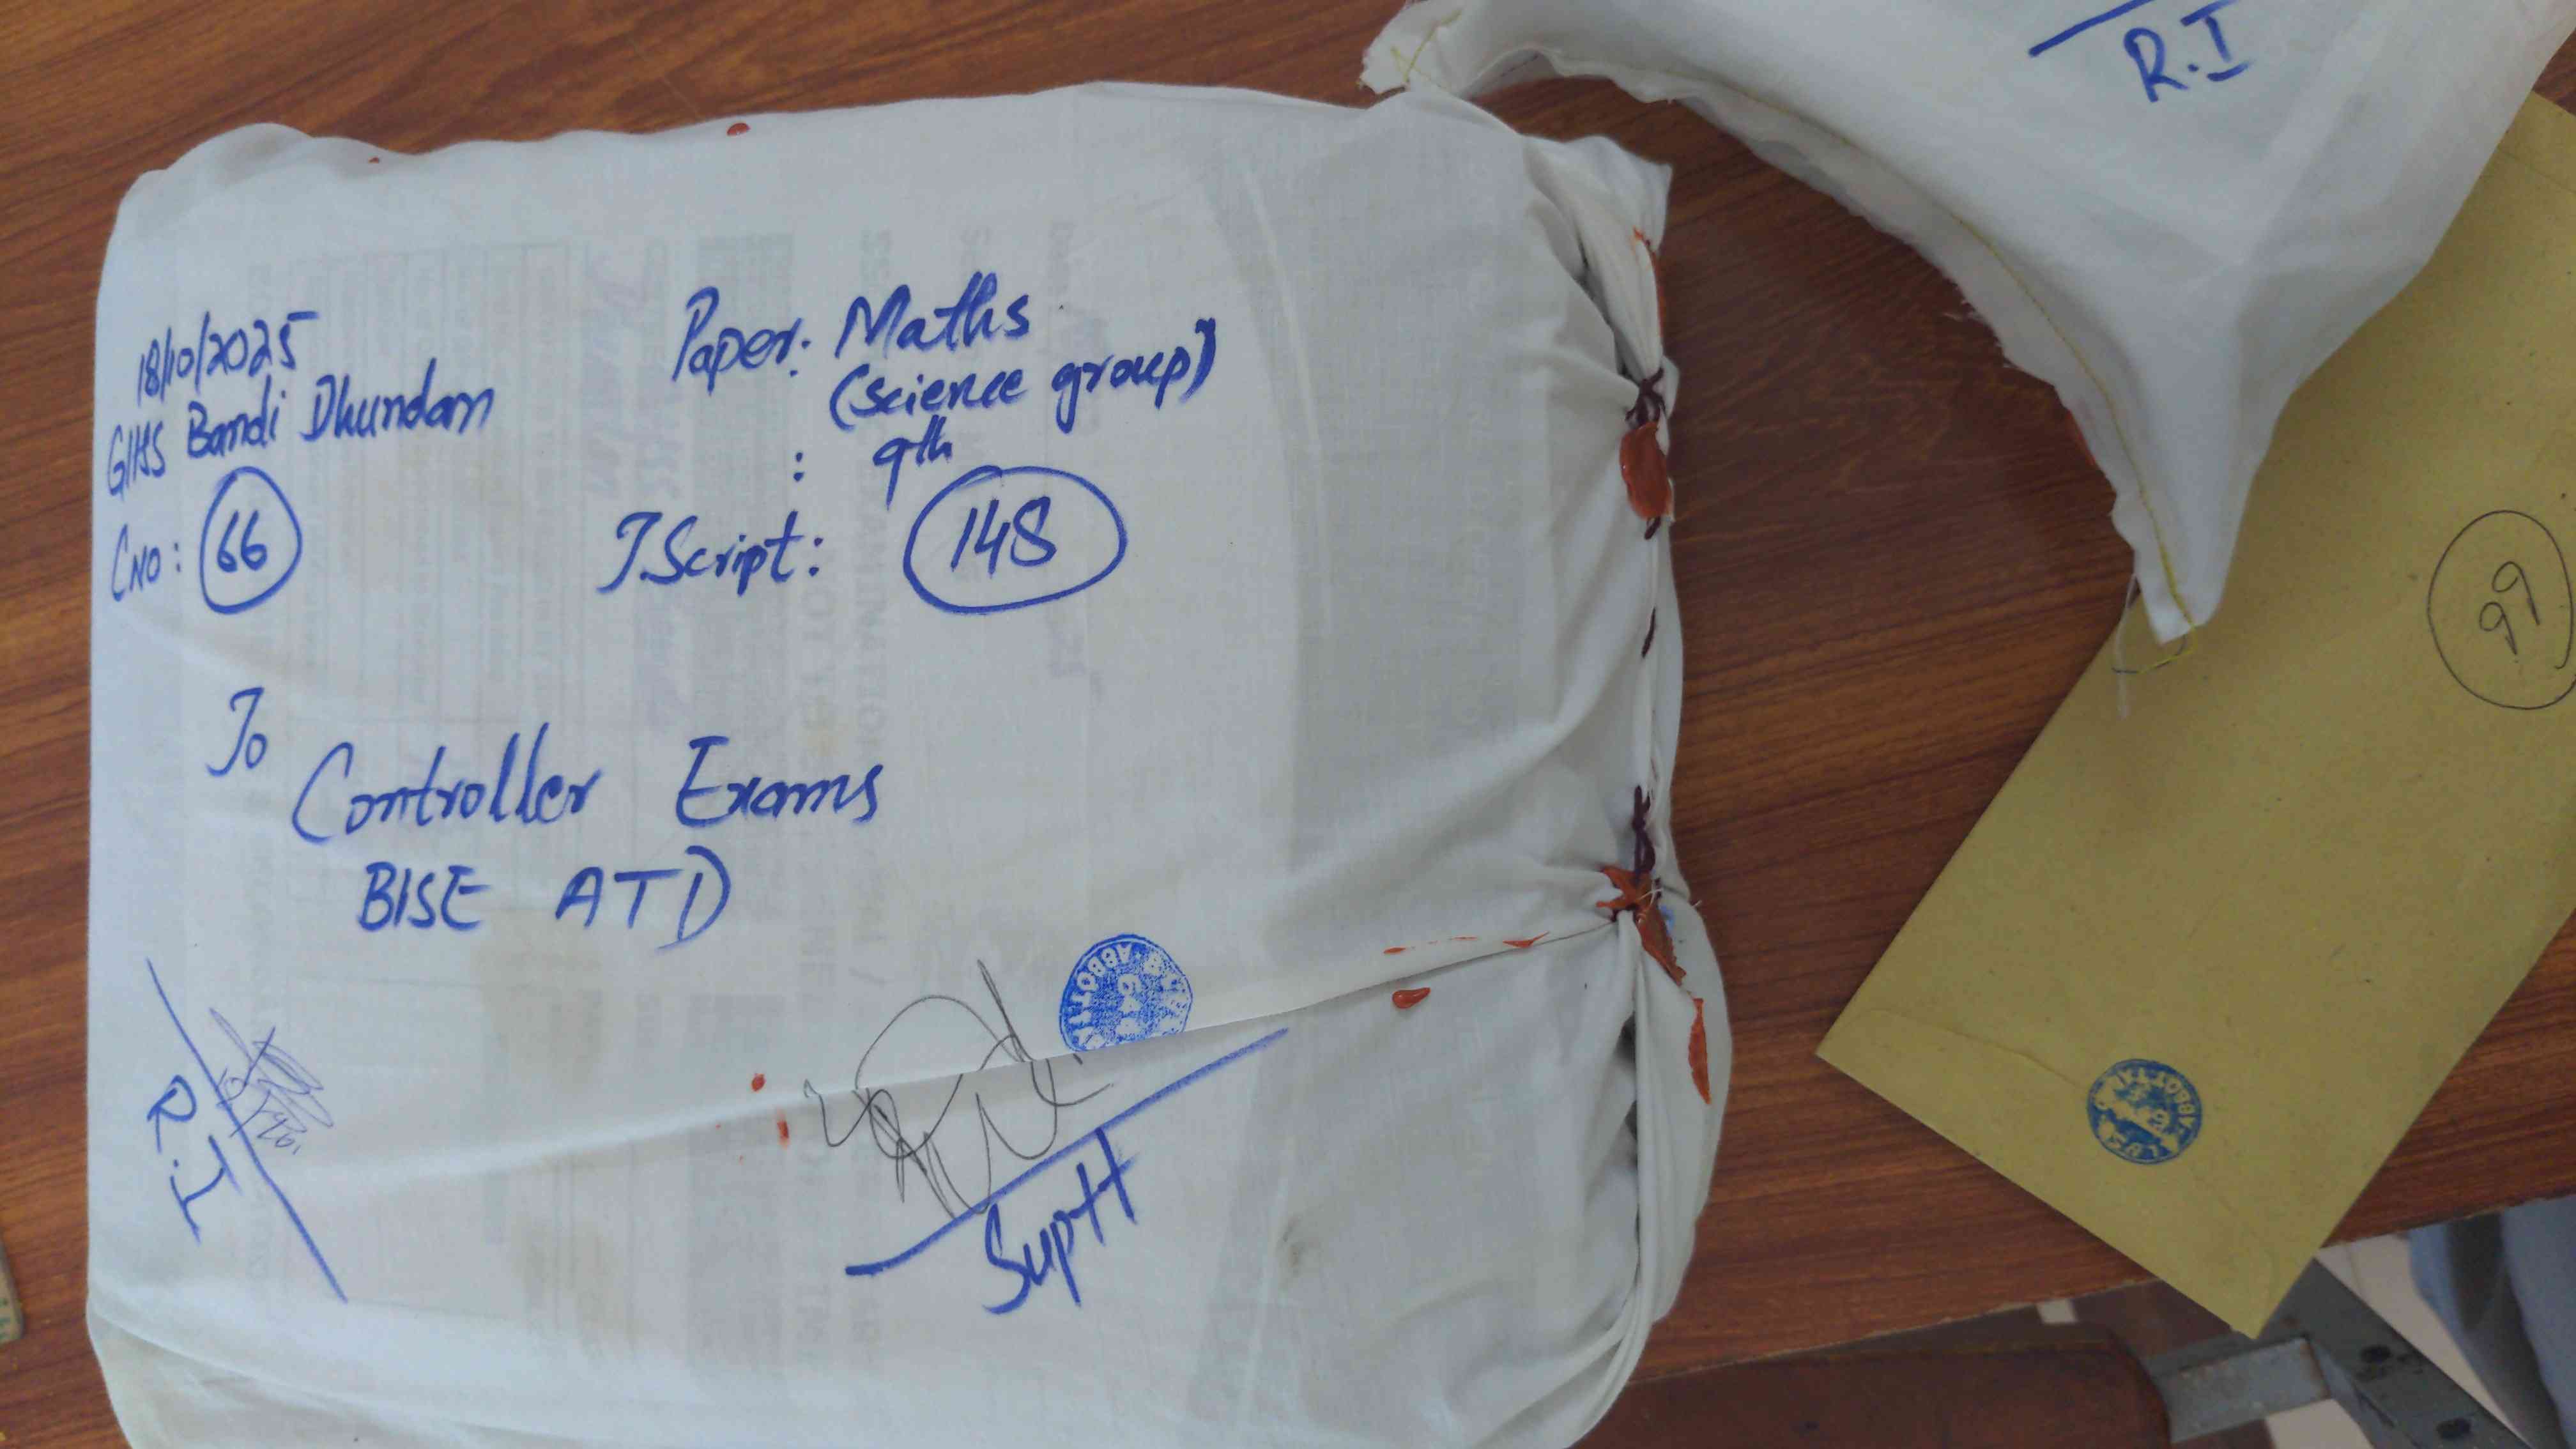 18/10/2025
GHSS Bandi Dhundan
CNO: 66
Paper: Maths
(science group)
: 9th
T.Script: 148
To
Controller Exams
BISE ATD
R.I
Suptt
R.I
66